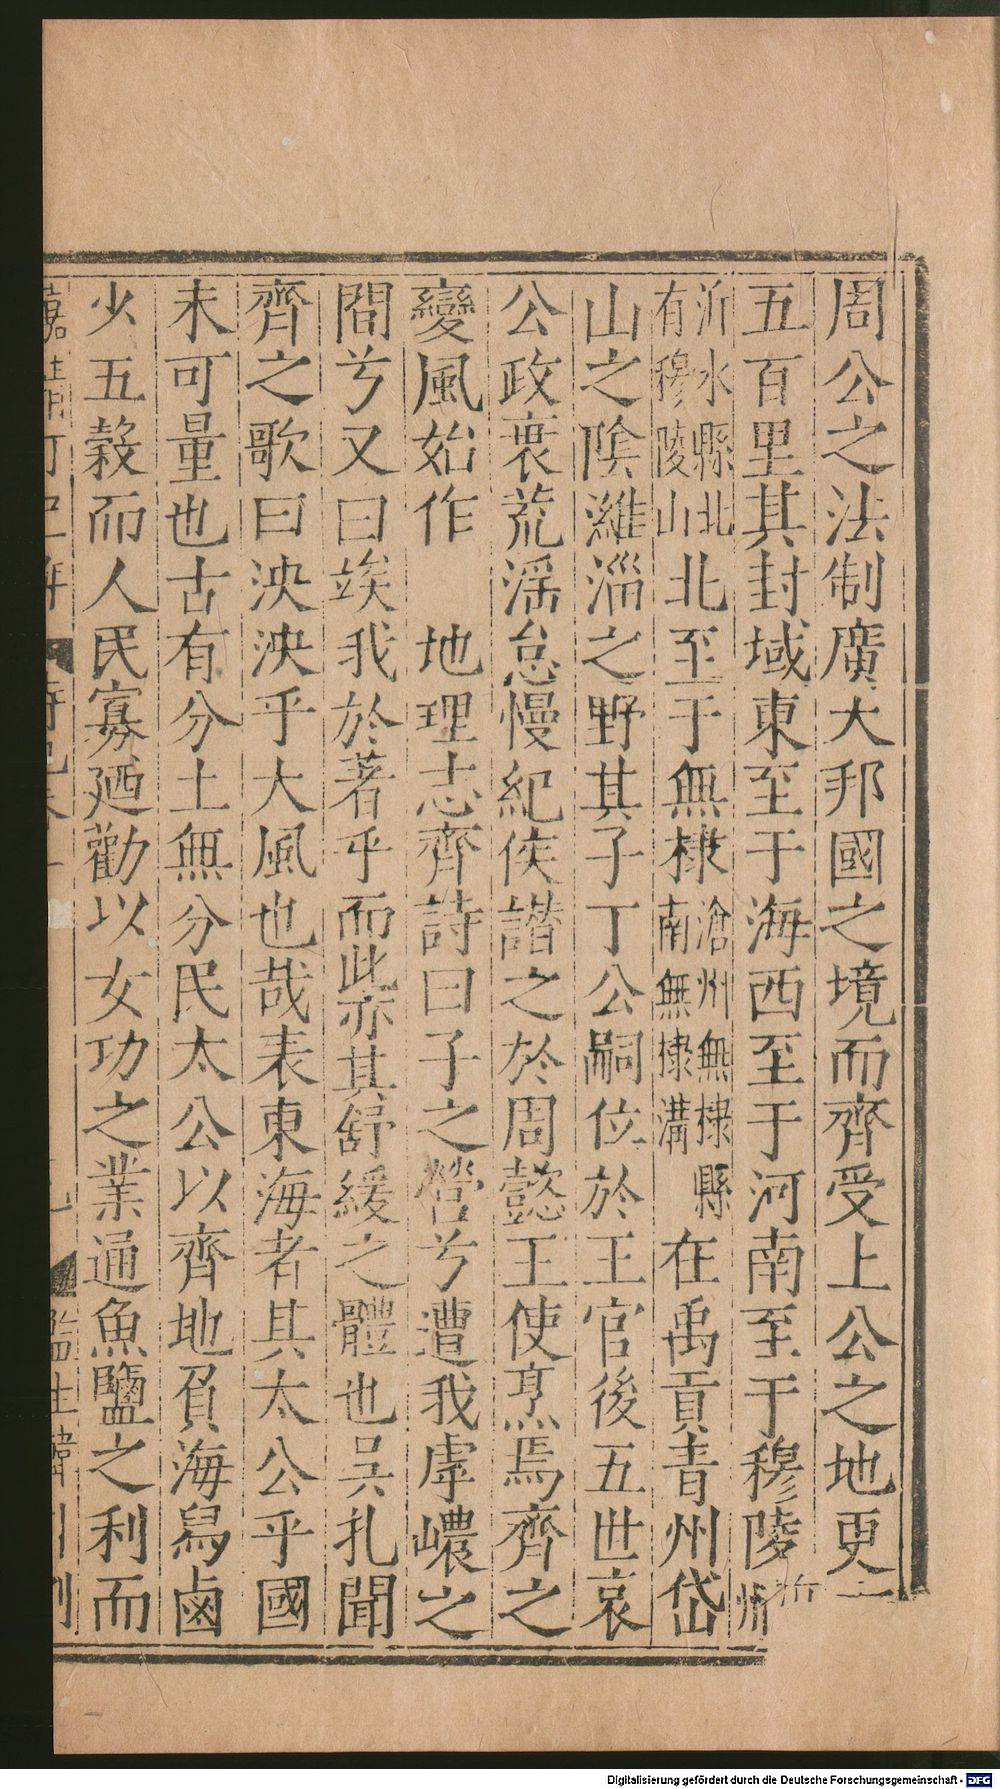 周公之法制廣大邦國之境而齊受上公之地更
五百里其封域東至于海西至于河南至于穆陵沂州
沂水縣北有穆陵山北至于無棣滄州無棣縣南無棣溝在禹貢青州岱
山之陰濰淄之野其子丁公嗣位於王官後五世哀
公政衰荒滛怠慢紀侯譖之於周懿王使烹焉齊之
變風始作　地理志齊詩曰子之營兮遭我虖巙之
間兮又曰竢我於著乎而此亦其舒緩之體也吳札聞
齊之歌曰泱泱乎大風也哉表東海者其太公乎國
未可量也古有分土無分民太公以齊地負海舄鹵
少五穀而人民寡廼勸以女功之業通魚鹽之利而
Digitalisierung gefördert durch die Deutsche Forschungsgemeinschaft - DFG